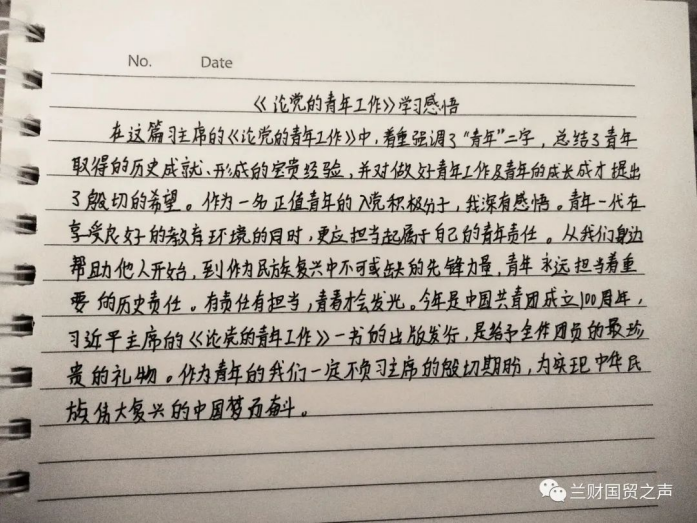 No. Date
《论党的青年工作》学习感悟
在这篇习主席的《论党的青年工作》中，着重强调了“青年”二字，总结了青年
取得的历史成就、形成的宝贵经验，并对做好青年工作及青年的成长成才提出
了殷切的希望。作为一名正值青年的入党积极分子，我深有感悟。青年一代在
享受良好的教育环境的同时，更应担当起属于自己的青年责任。从我们身边
帮助他人开始，到作为民族复兴中不可或缺的先锋力量，青年永远担当着重
要的历史责任。有责任有担当，青春才会发光。今年是中国共青团成立100周年，
习近平主席的《论党的青年工作》一书的出版发行，是给予全体团员的最珍
贵的礼物。作为青年的我们一定不负习主席的殷切期盼，为实现中华民
族伟大复兴的中国梦而奋斗。
兰财国贸之声